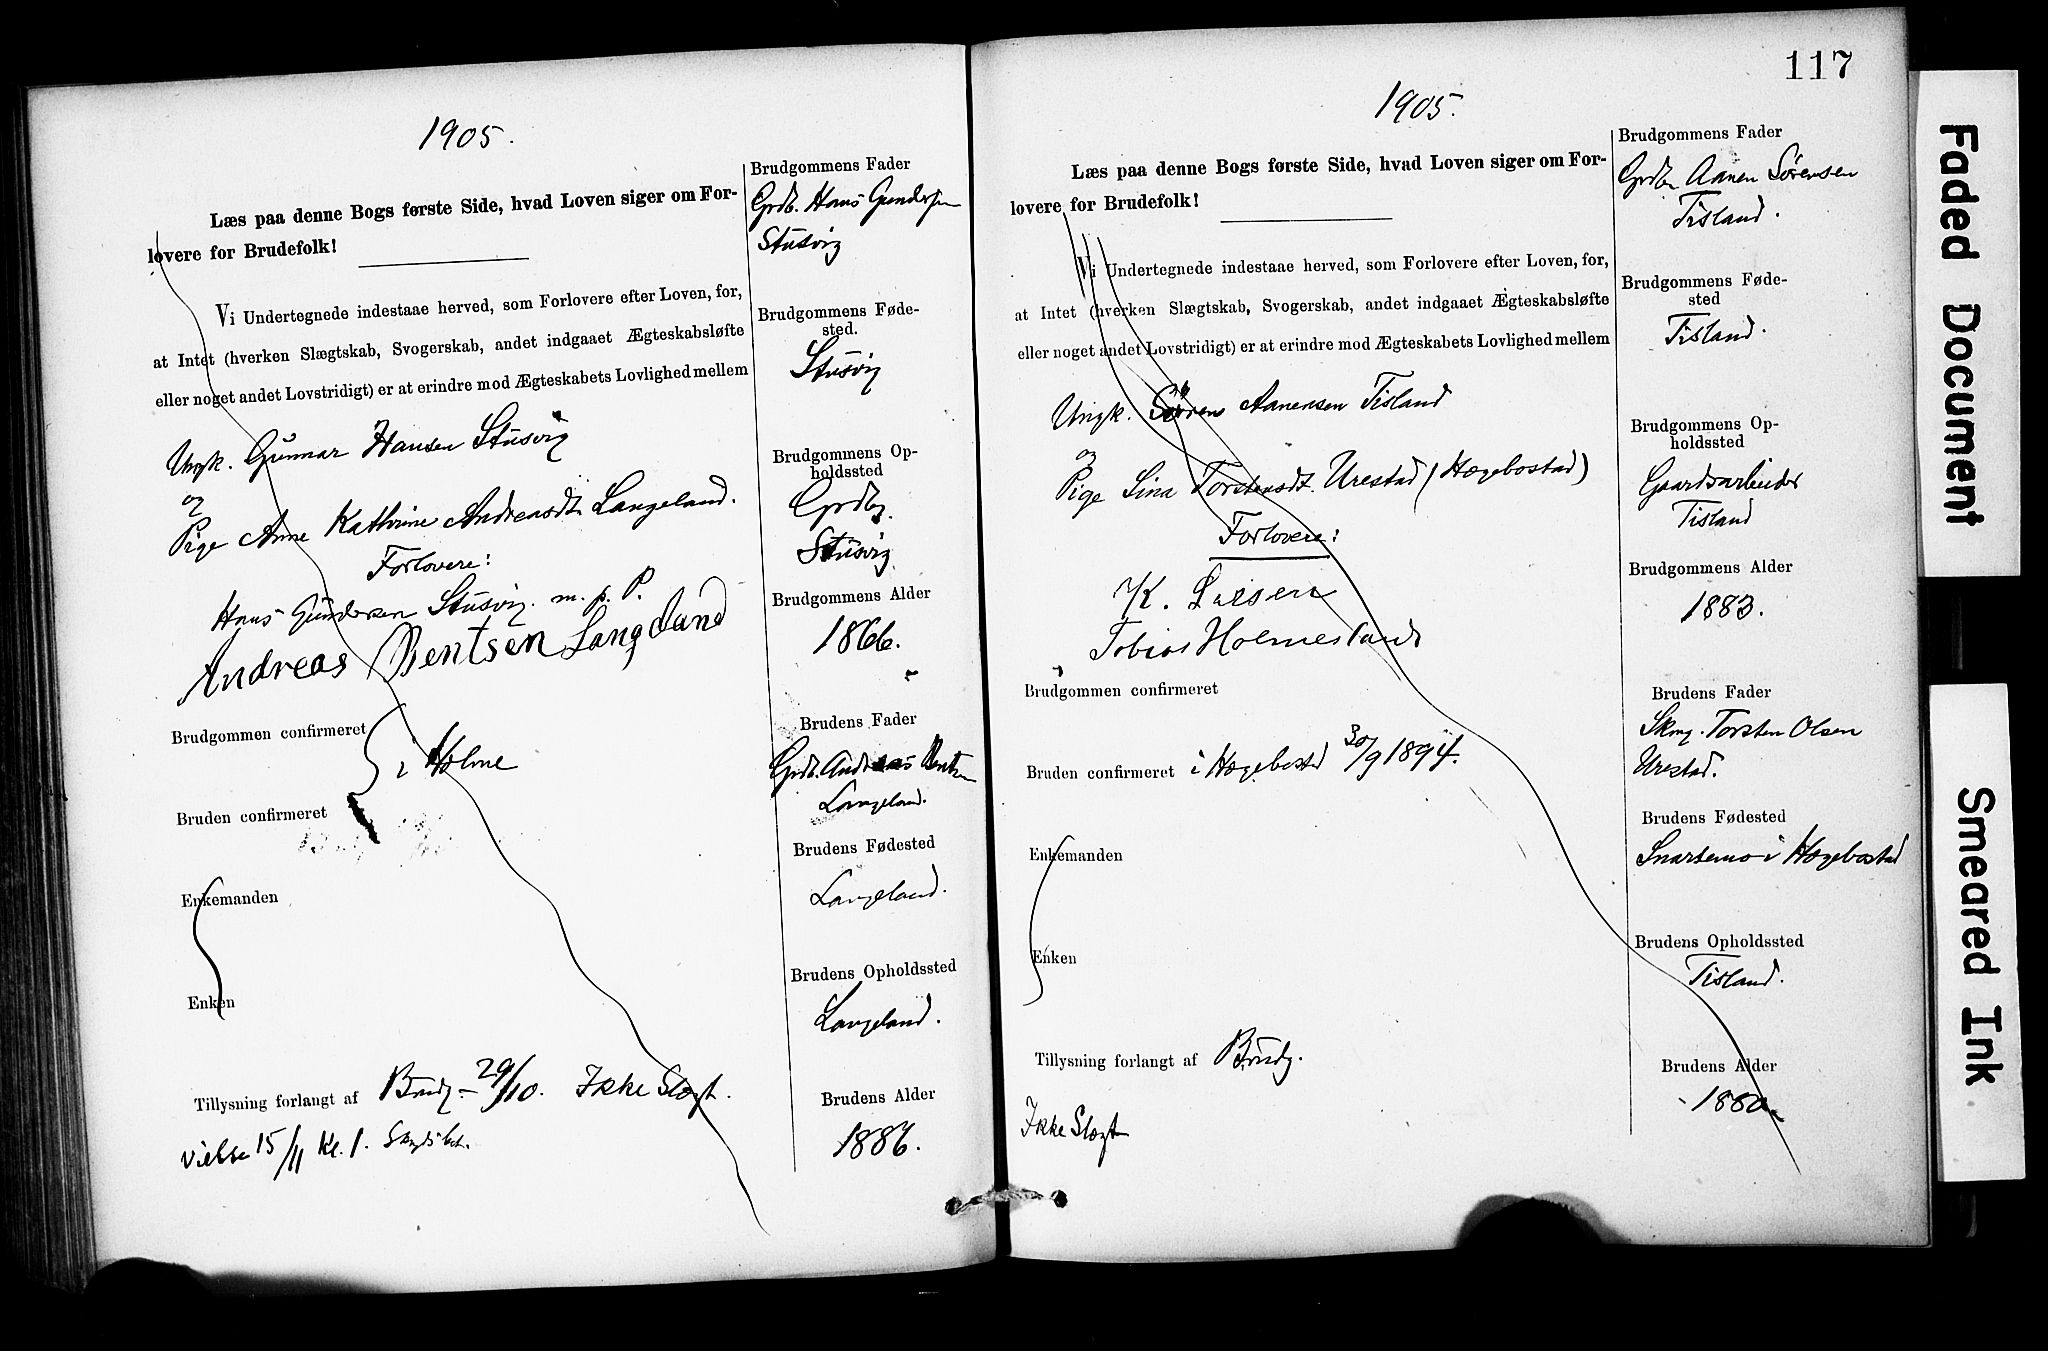 1905.
Læs paa denne Bogs første Side, hvad Loven siger om For-
lovere for Brudefolk!
Vi Undertegnede indestaae herved, som Forlovere efter Loven, for,
at Intet (hverken Slægtskab, Svogerskab, andet indgaaet Ægteskabsløfte
eller noget andet Lovstridigt) er at erindre mod Ægteskabets Lovlighed mellem
Ungk. Gunnar Hansen Stusvig
og
Pige Anne Kathrine Andreasdt. Langeland.
Forlovere:
Hans Gundersen Stusvig. m. p. P.
Andreas Bentsen Langeland
Brudgommen confirmeret
i Holme
Bruden confirmeret
Enkemanden
Enken
Tillysning forlangt af Brudg. - 29/10. Ikke Slægt.
Vielse 15/11 Kl. 1.
Brudgommens Fader
Grdb. Hans Gundersen
Stusvig
Brudgommens Føde-
sted.
Stusvig
Brudgommens Op-
holdssted
Grdbr.
Stusvig
Brudgommens Alder
1866.
Brudens Fader
Grdb. Andreas Bentsen
Langeland.
Brudens Fødested
Langeland.
Brudens Opholdssted
Langeland.
Brudens Alder
1886.
117
1905.
Læs paa denne Bogs første Side, hvad Loven siger om For-
lovere for Brudefolk!
Vi Undertegnede indestaae herved, som Forlovere efter Loven, for,
at Intet (hverken Slægtskab, Svogerskab, andet indgaaet Ægteskabsløfte
eller noget andet Lovstridigt) er at erindre mod Ægteskabets Lovlighed mellem
Ungk. Søren Aanensen Tisland
og
Pige Lina Torstensdt. Urestad (Hægebostad)
Forlovere:
K. Larsen
Tobias Holmesland
Brudgommen confirmeret
Bruden confirmeret i Hægebostad 30/9 1894.
Enkemanden
Enken
Tillysning forlangt af Brudg.
Ikke Slægt
Brudgommens Fader
Grdbr Aanen Sørensen
Tisland.
Brudgommens Føde-
sted
Tisland.
Brudgommens Op-
holdssted
Gaardsarbeider
Tisland
Brudgommens Alder
1883.
Brudens Fader
Skmg. Torsten Olsen
Urestad.
Brudens Fødested
Snartemo i Hægebostad
Brudens Opholdssted
Tisland.
Brudens Alder
1880.
Faded Document
Smeared Ink